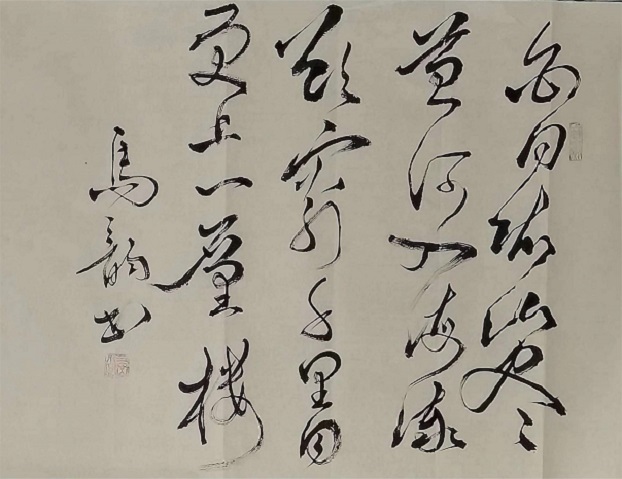 白日依山尽
黄河入海流
欲穷千里目
更上一层楼
马韵书